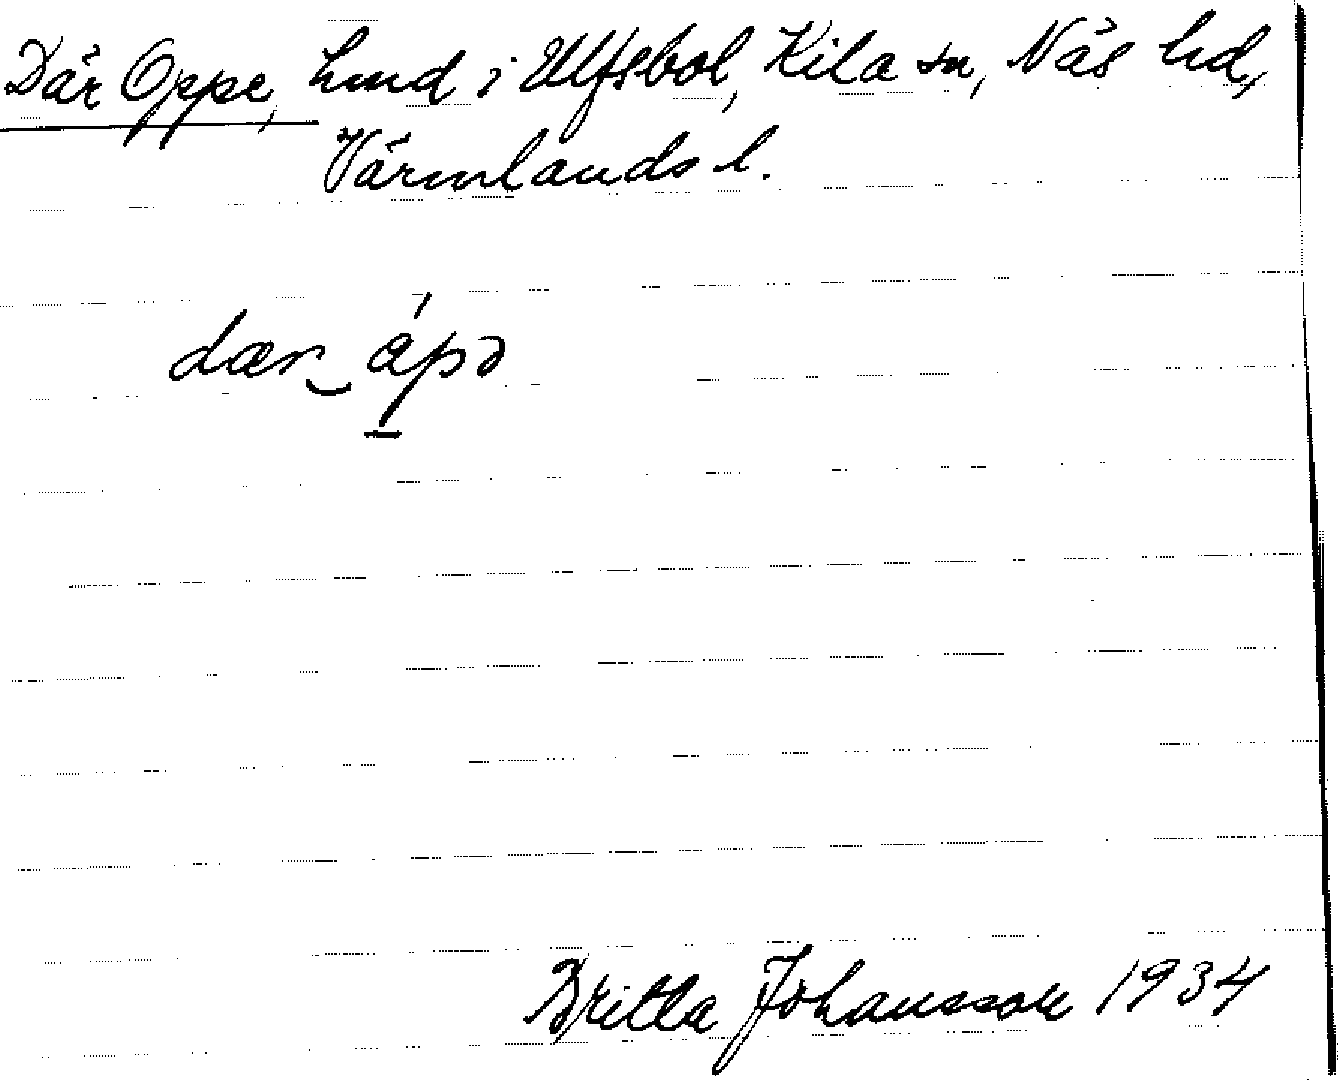 Där Oppe, hmd i Ulfsbol, Kila sn, Näs hd,
Värmlands l.
dær‿ápə
Britta Johansson 1934